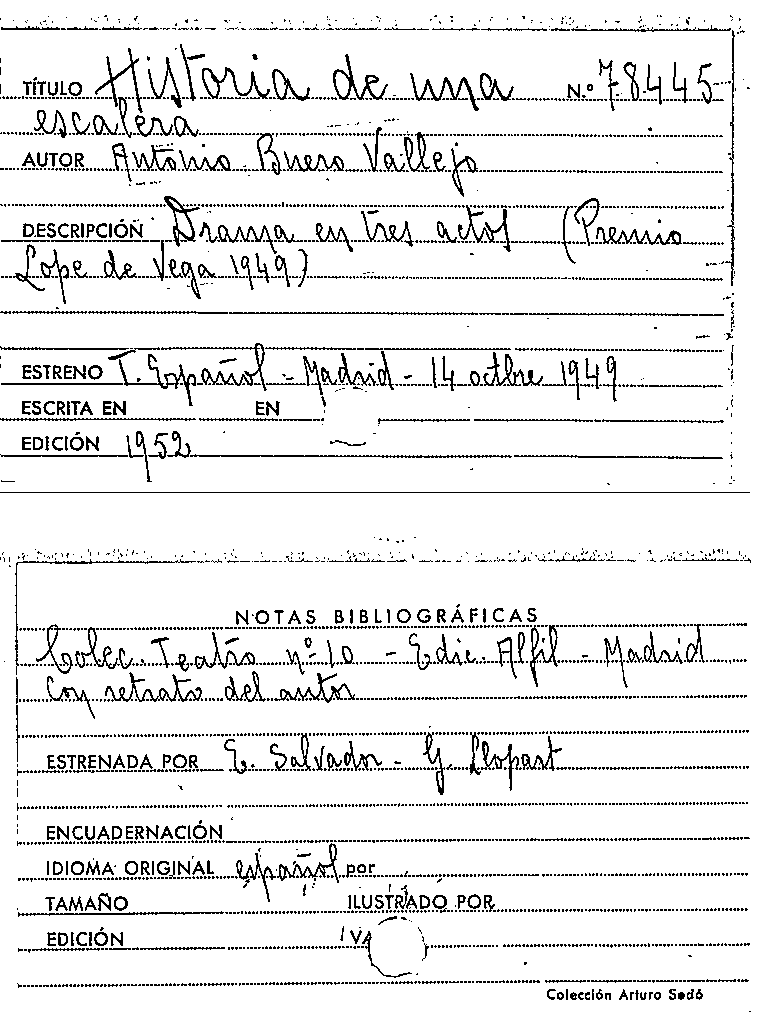 TÍTULO Historia de una N.º 78445
escalera
AUTOR Antonio Buero Vallejo
DESCRIPCIÓN Drama en tres actos (Premio
Lope de Vega 1949)
ESTRENO T. Español - Madrid - 14 octbre 1949
ESCRITA EN EN
EDICIÓN 1952
NOTAS BIBLIOGRÁFICAS
Colec. Teatro nº 10 - Edic. Alfil - Madrid
Con retrato del autor
ESTRENADA POR E. Salvador - G. Llopart
ENCUADERNACIÓN
IDIOMA ORIGINAL español por
TAMAÑO ILUSTRADO POR
EDICIÓN
Colección Arturo Sedó